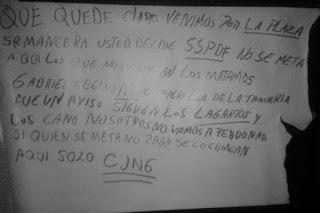 QUE QUEDE CLARO VENIMOS POR LA PLAZA
SR MANCERA USTED DECIDE SSPDF NO SE META
AQUI LOS QUE NOS LOS MATAMOS
GABRIEL REGINO LO DE LA TAQUERIA
FUE UN AVISO SIGUEN LOS LAGARTOS Y
LOS CANO NOSOTROS NO VAMOS A PERDONAR
SI QUIEN SE META NO PAGA SE LO CHINGAN
AQUI SOLO CJNG